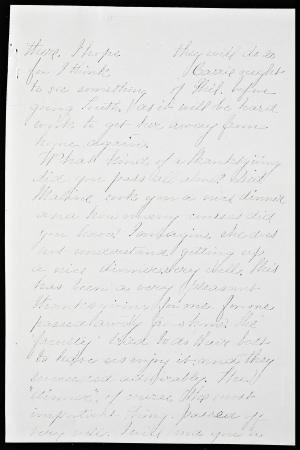 there. I hope they will do so
for I think Carrie ought
to see something of Phil. before
going South, as it will be hard
work to get her away from
home again.
What kind of a Thanksgiving
did you pass all alone? Did
cook you a nice dinner
and how many courses did
you have? I imagine she does
not understand getting up
a nice dinner very well. This
has been a very pleasant
Thanksgiving for me, for one
passed away from home. The
"faculty" tried to do their best
to have us enjoy it, and they
succeeded admirably. The
"dinner", of course the most
important thing, passed off
very well. I will send you a